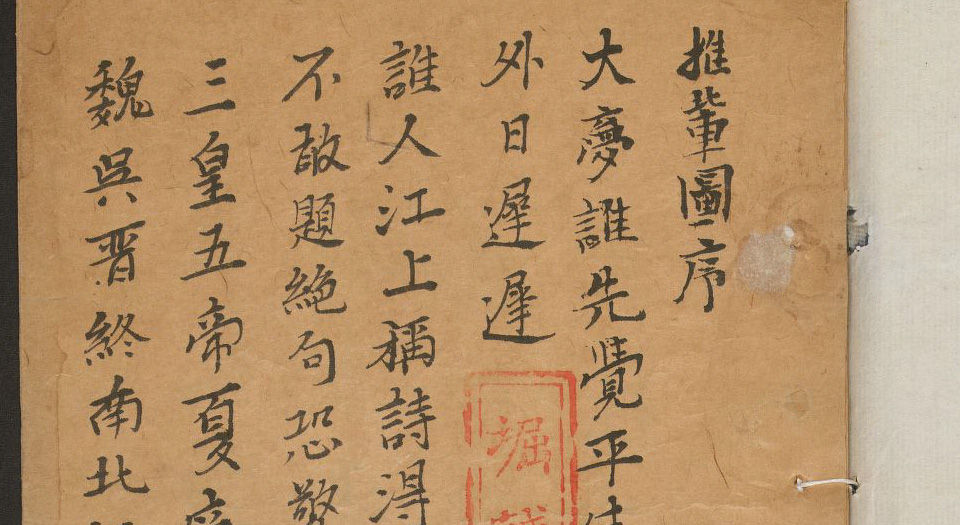 推輩圖序
大夢誰先覺平生
外日遲遲
誰人江上稱詩得
不敢題絕句恐驚
三皇五帝夏
魏吳晋終南北
堀